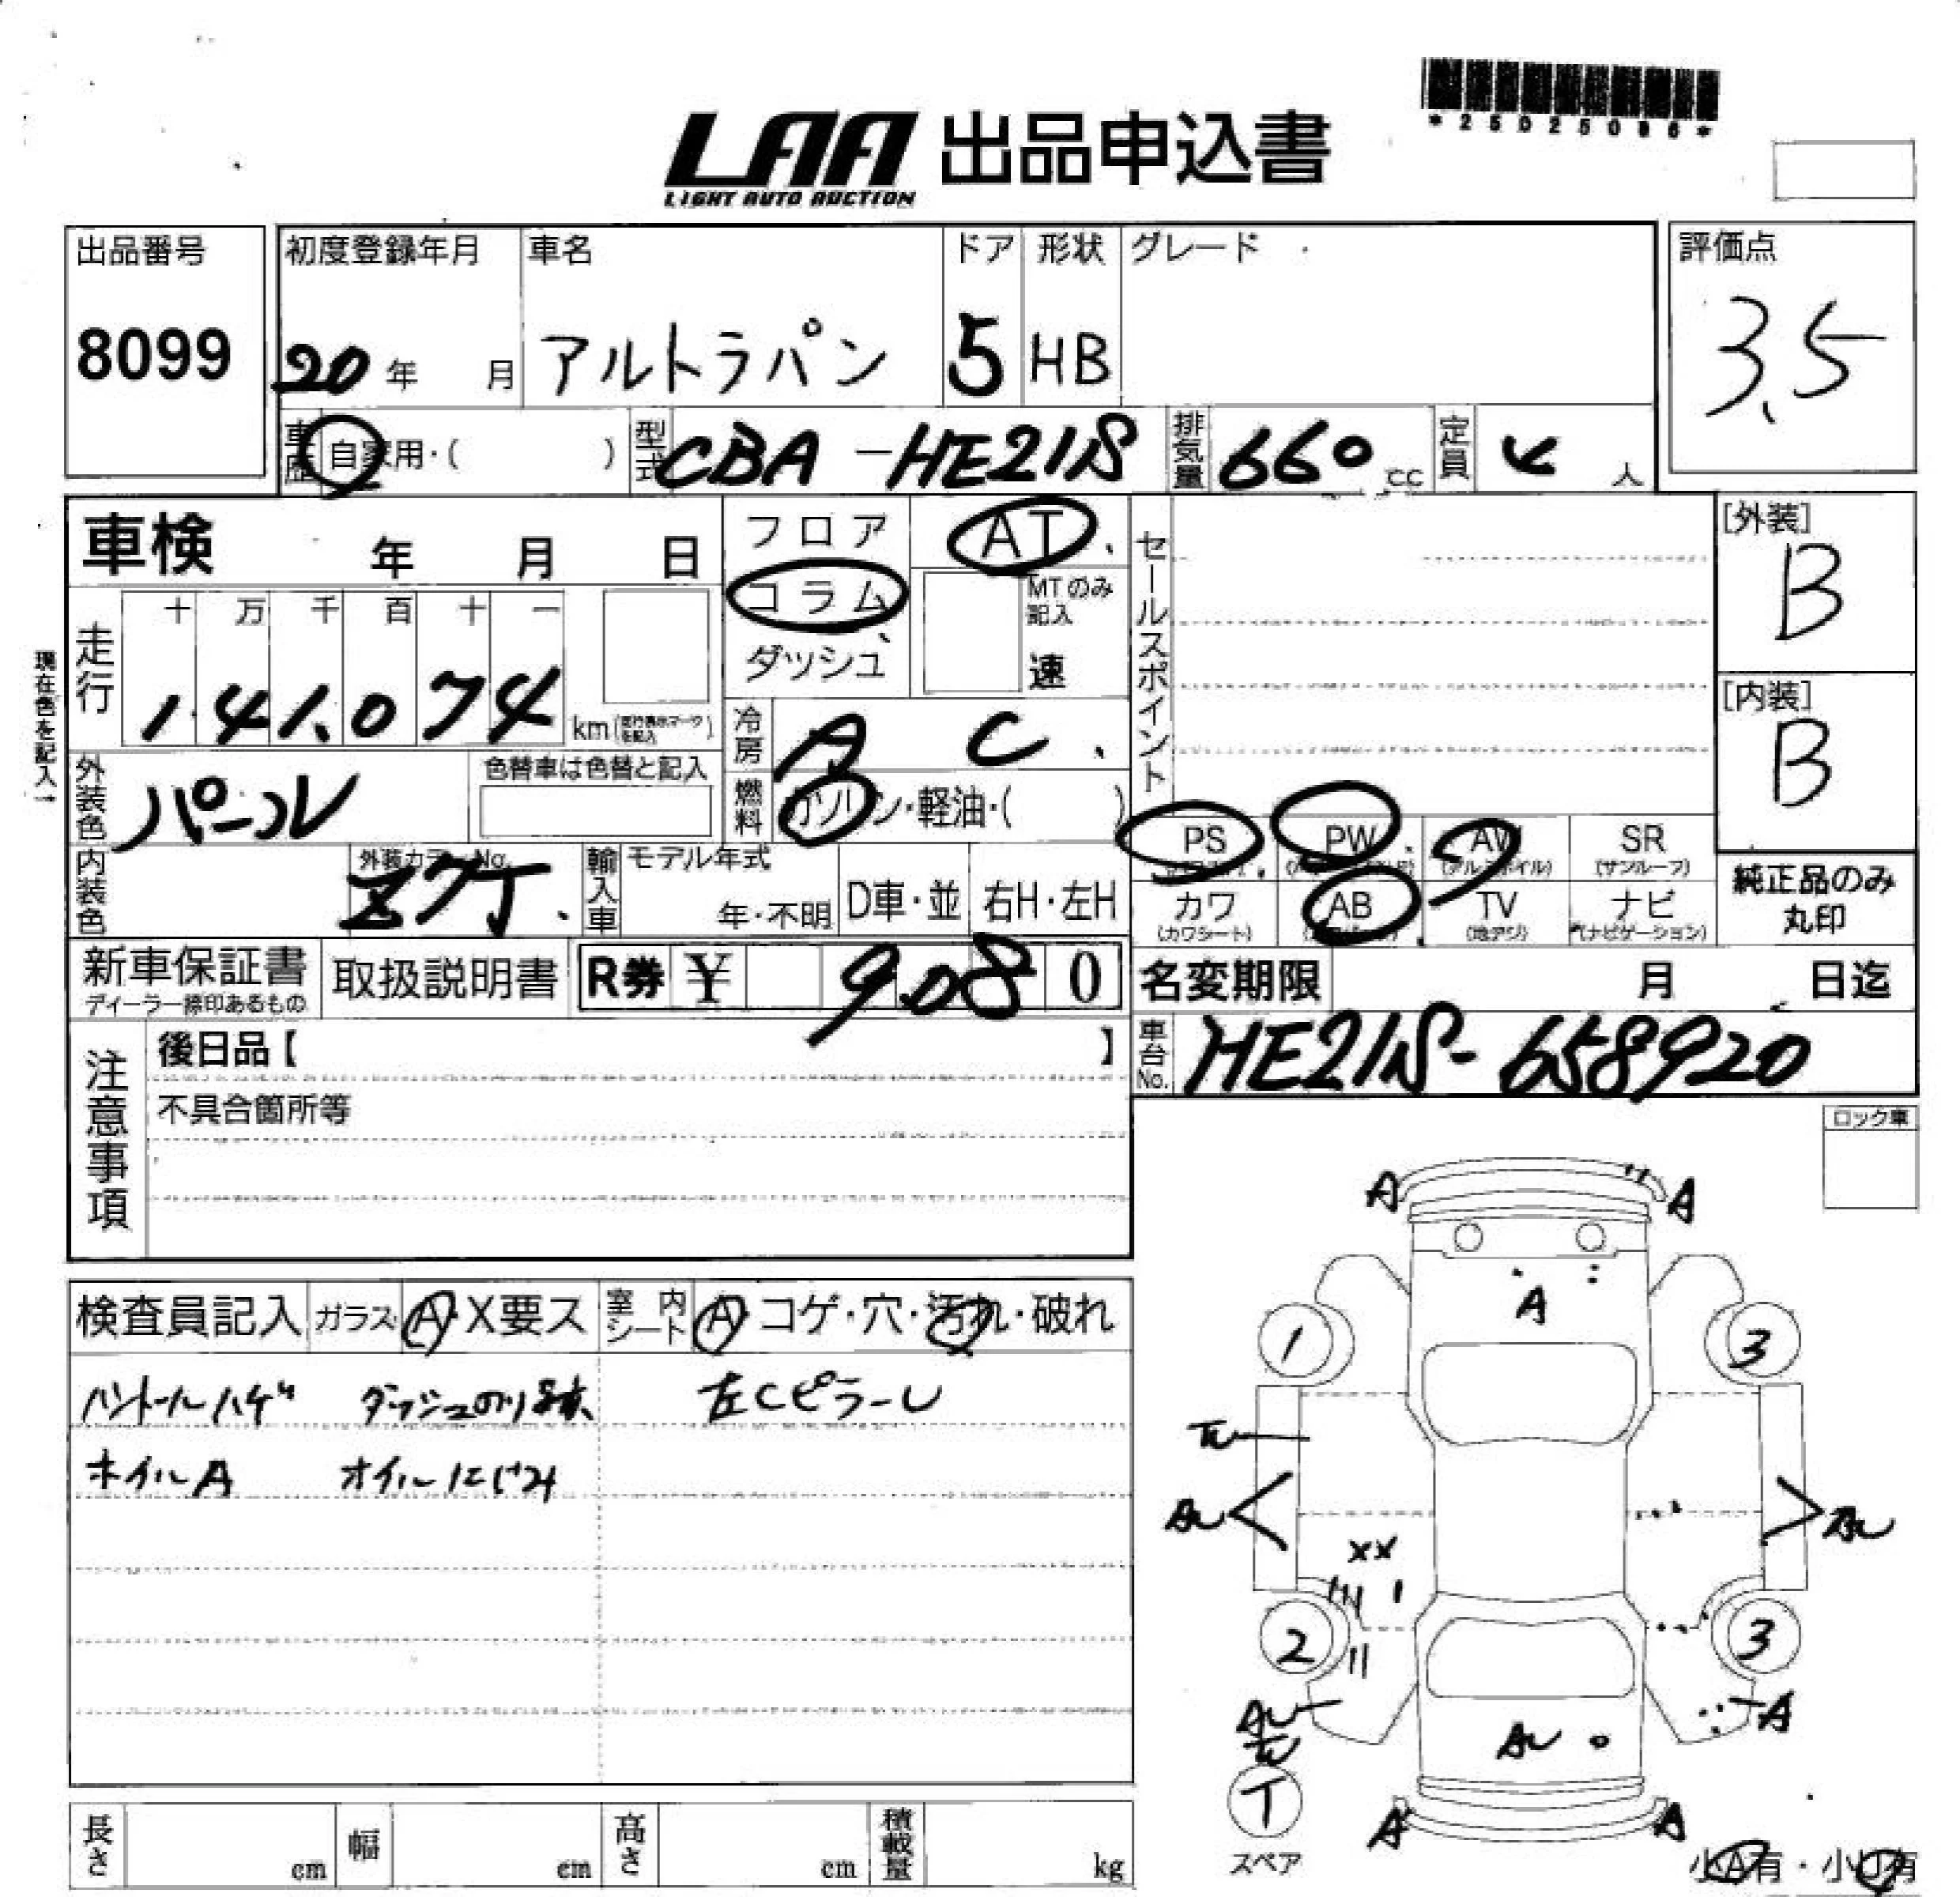 *25025086*
LAA 出品申込書
LIGHT AUTO AUCTION
出品番号
8099
初度登録年月
20年 月
車名
アルトラパン
ドア
5
形状
HB
グレード
評価点
3.5
車歴
自家用・( )
型式
CBA-HE21S
排気量
660 cc
定員
4 人
車検 年 月 日
フロア
コラム
ダッシュ
AT
MTのみ
記入
速
セールスポイント
[外装]
B
[内装]
B
現在色を記入→
走行
十 万 千 百 十 一
141,074
km(走行表示マークを記入)
冷房
AC
外装色
パール
色替車は色替と記入
燃料
ガソリン・軽油・( )
PS
PW
AW
(アルミホイル)
SR
(サンルーフ)
カワ
(カワシート)
AB
TV
(地デジ)
ナビ
(ナビゲーション)
純正品のみ
丸印
内装色
外装カラーNo.
Z7T
輸入車
モデル年式
年・不明
D車・並
右H・左H
新車保証書
ディーラー捺印あるもの
取扱説明書
R券 ¥ 9,080
名変期限 月 日迄
車台No.
HE21S-658920
注意事項
後日品【 】
不具合箇所等
ロック車
検査員記入 ガラス A・X要ス 室内シート A・コゲ・穴・汚れ・破れ
ハンドルハゲ ダッシュのり跡 左CピラーU
ホイルA オイルにじみ
A A
A
1 3
AU AU
XX
2 3
AU A
AU
T
スペア
A A
小A有・小U有
長さ cm 幅 cm 高さ cm 積載量 kg